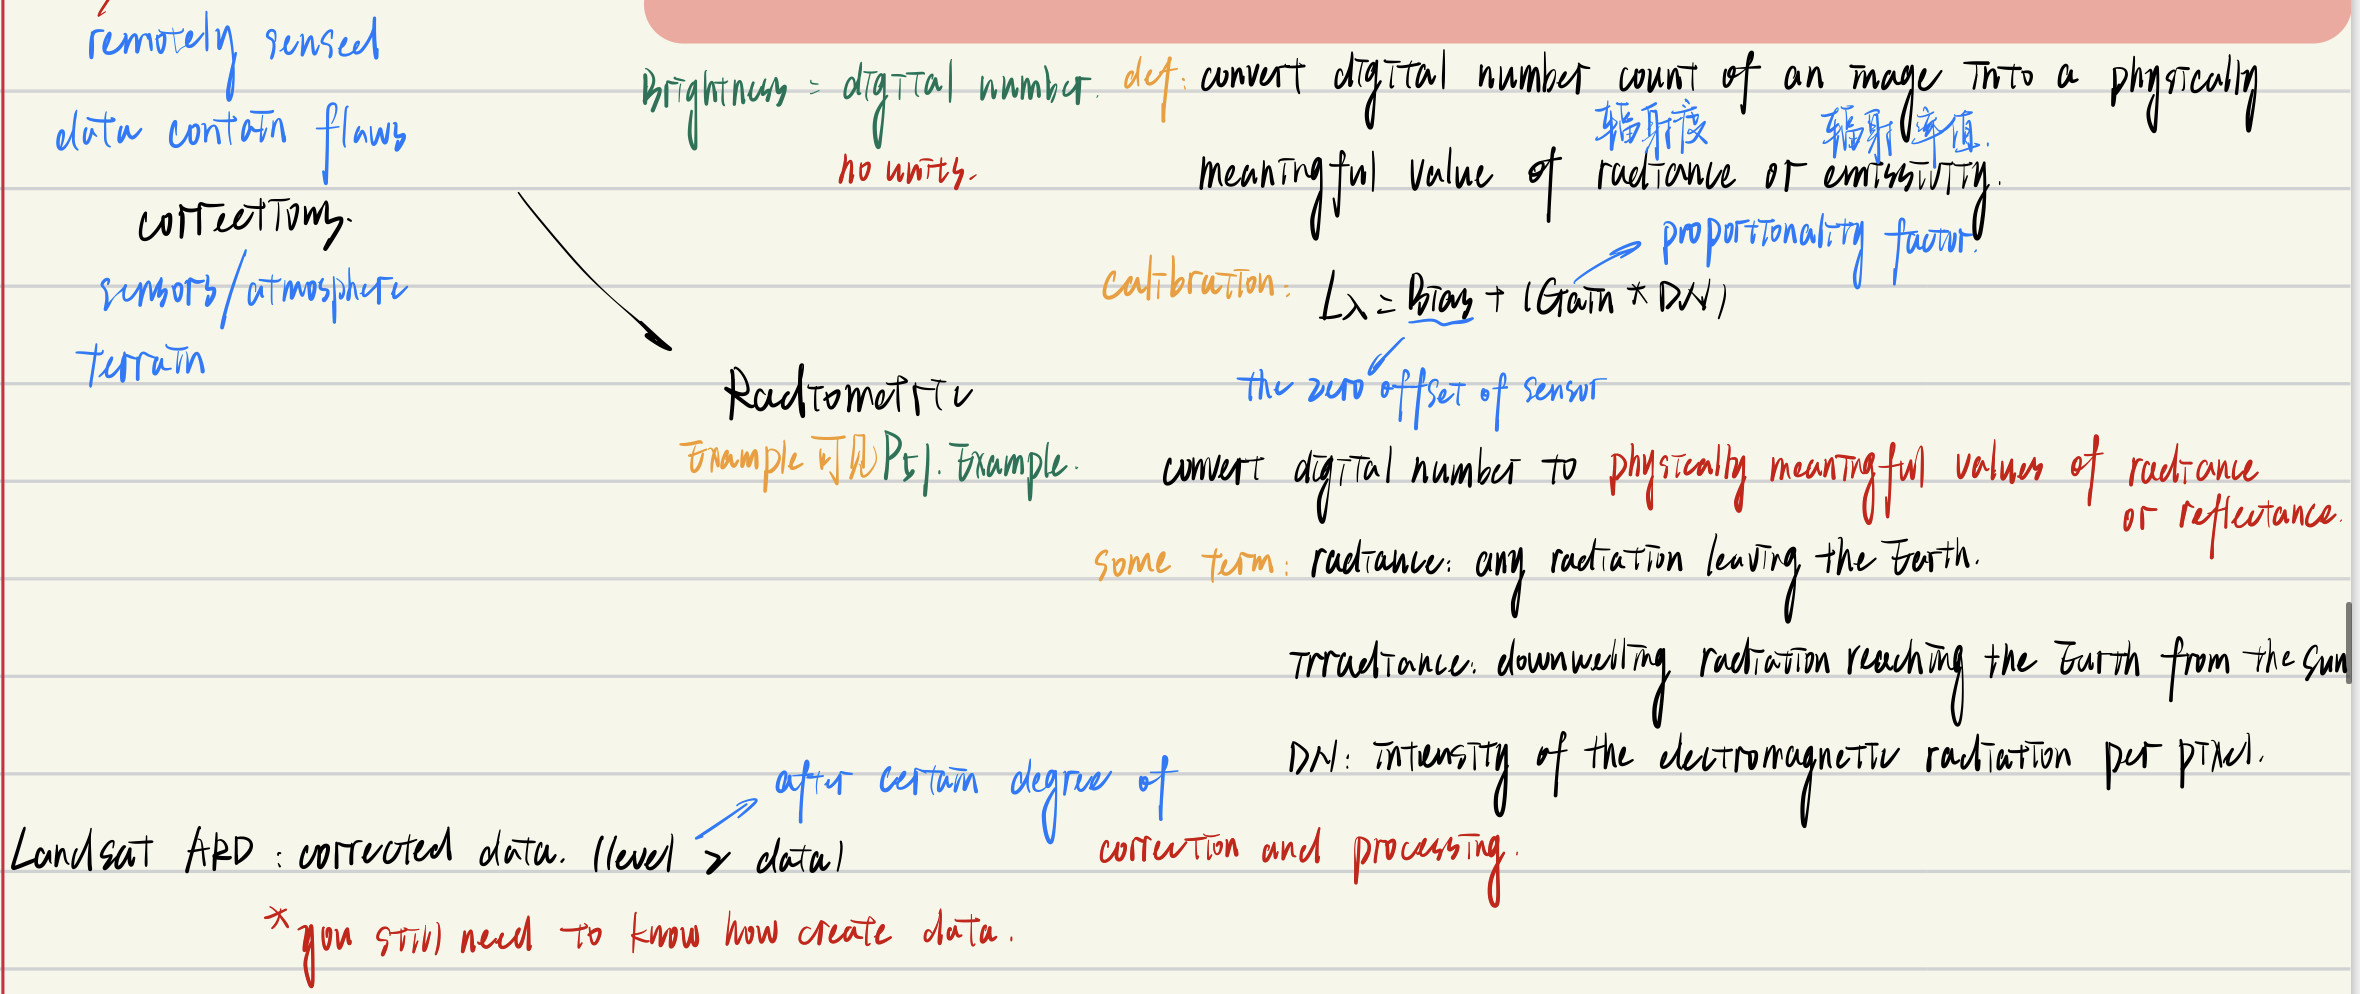 remotely sensed
data contain flaws
corrections.
sensors/atmosphere
terrain
Brightness = digital number.
no units.
def: convert digital number count of an image into a physically
辐射度 辐射率值.
meaningful value of radiance or emissivity.
proportionality factor.
calibration: Lλ = Bias + (Gain * DN)
the zero offset of sensor
Radiometric
Example 可见 P51. Example.
convert digital number to physically meaningful values of radiance
or reflectance.
some term: radiance: any radiation leaving the Earth.
irradiance: downwelling radiation reaching the Earth from the sun
DN: intensity of the electromagnetic radiation per pixel.
after certain degree of
correction and processing.
Landsat ARD : corrected data. (level 2 data)
*you still need to know how create data.